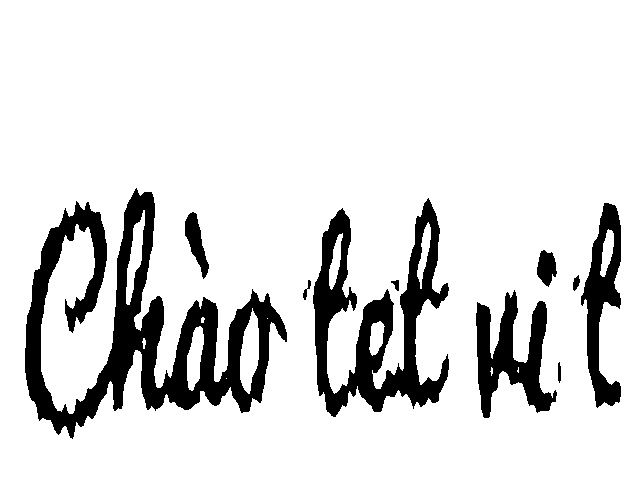 Chào tet vi t